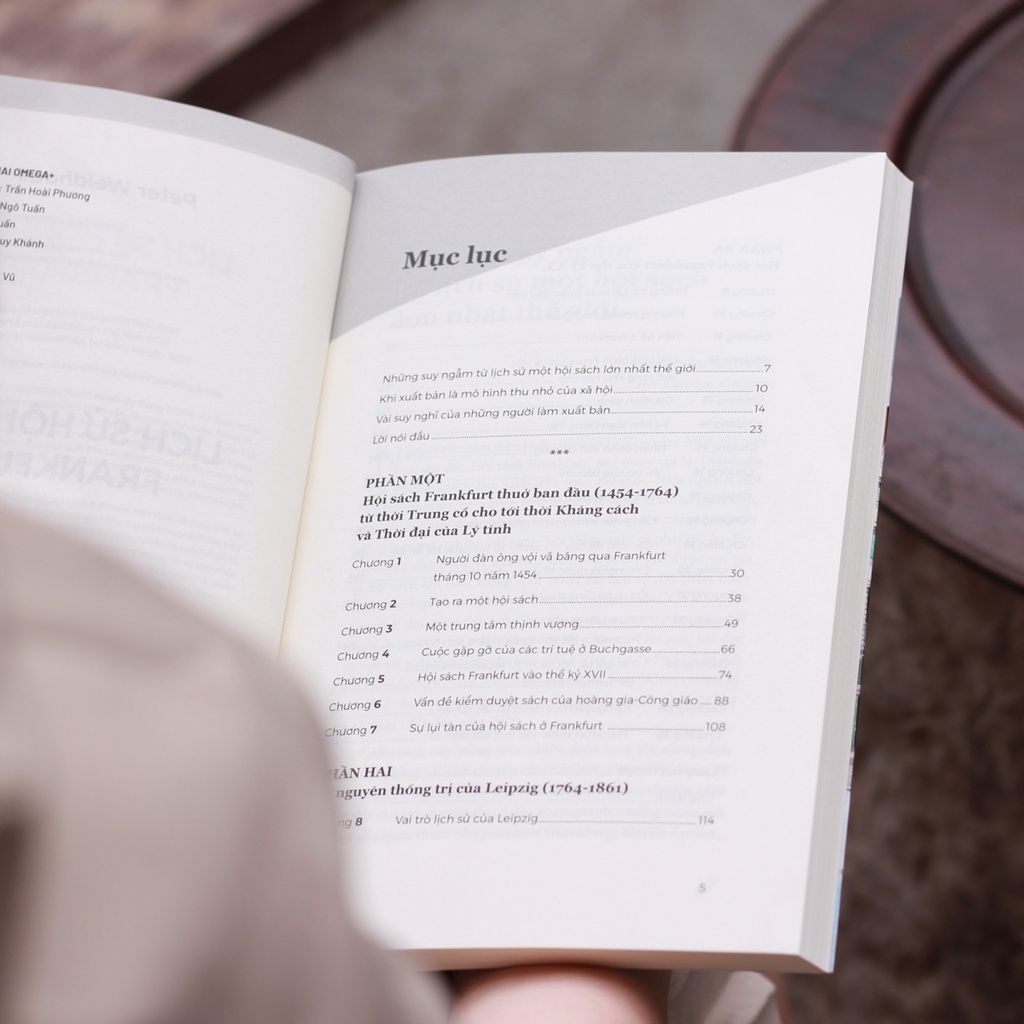 AI OMEGA+
: Trần Hoài Phương
Ngô Tuấn
uấn
uy Khánh
Vũ
Mục lục
Những suy ngẫm từ lịch sử một hội sách lớn nhất thế giới 7
Khi xuất bản là mô hình thu nhỏ của xã hội 10
Vài suy nghĩ của những người làm xuất bản 14
Lời nói đầu 23
***
PHẦN MỘT
Hội sách Frankfurt thuở ban đầu (1454-1764)
từ thời Trung cổ cho tới thời Kháng cách
và Thời đại của Lý tính
Chương 1 Người đàn ông vội vã băng qua Frankfurt
tháng 10 năm 1454 30
Chương 2 Tạo ra một hội sách 38
Chương 3 Một trung tâm thịnh vượng 49
Chương 4 Cuộc gặp gỡ của các trí tuệ ở Buchgasse 66
Chương 5 Hội sách Frankfurt vào thế kỷ XVII 74
Chương 6 Vấn đề kiểm duyệt sách của hoàng gia-Công giáo 88
Chương 7 Sự lụi tàn của hội sách ở Frankfurt 108
HẦN HAI
nguyên thống trị của Leipzig (1764-1861)
ng 8 Vai trò lịch sử của Leipzig 114
5